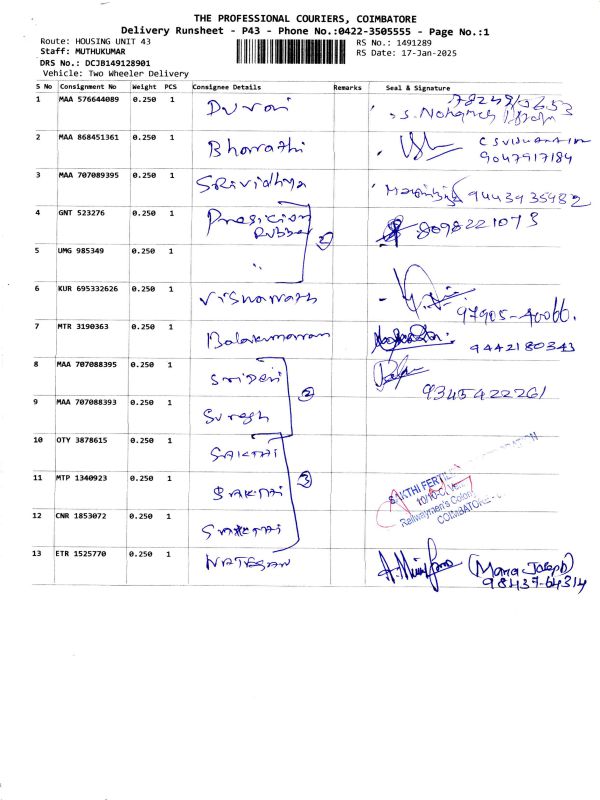 THE PROFESSIONAL COURIERS, COIMBATORE
Delivery Runsheet - P43 - Phone No.:0422-3505555 - Page No.:1
Route: HOUSING UNIT 43 RS No.: 1491289
Staff: MUTHUKUMAR RS Date: 17-Jan-2025
DRS No.: DCJB149128901
Vehicle: Two Wheeler Delivery
S No Consignment No Weight PCS Consignee Details Remarks Seal & Signature
1 MAA 576644089 0.250 1 Durai
2 MAA 868451361 0.250 1 Bharathi
9047917184
3 MAA 707089395 0.250 1 Srividhya 9443935982
4 GNT 523276 0.250 1 Presicion
Rubber 2 8098221073
5 UMG 985349 0.250 1 "
6 KUR 695332626 0.250 1 Viswanath
97905-40066.
7 MTR 3190363 0.250 1 Balakumaran
9442180343
8 MAA 707088395 0.250 1 Sridevi
2 9345422261
9 MAA 707088393 0.250 1 Suresh
10 OTY 3878615 0.250 1 SAKTHI
SAKTHI FERTIL
11 MTP 1340923 0.250 1 SAKTHI 3
Railwaymen's Colony
12 CNR 1853072 0.250 1 SAKTHI
COIMBATORE -
13 ETR 1525770 0.250 1 NATESAN (Maria Joseph)
98437-64314